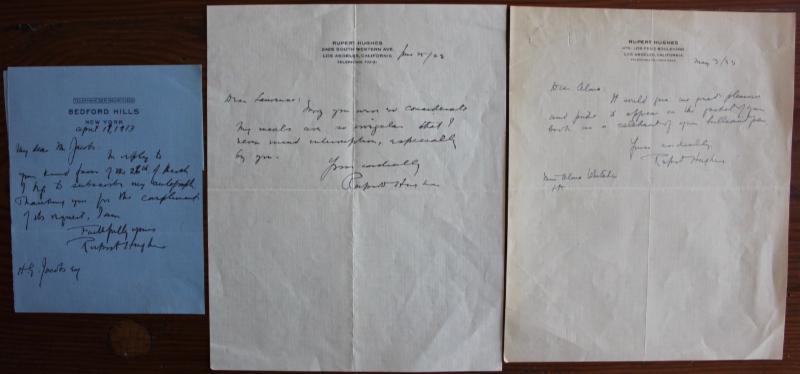 BEDFORD HILLS
NEW YORK
April 19, 1913
My dear Mr. Jacobs:
In reply to
your kind favor of the 26th of March
I beg to subscribe my autograph.
Thanking you for the compliment
of its request, I am
Faithfully yours
Rupert Hughes
H. G. Jacobs esq
RUPERT HUGHES
SOUTH WESTERN AVE.
LOS ANGELES, CALIFORNIA
TELEPHONE
/23
Dear Lawrence:
you were so considerate
My meals are so irregular that I
never mind interruption, especially
by you.
Yours cordially
Rupert Hughes
RUPERT HUGHES
LOS FELIZ BOULEVARD
LOS ANGELES, CALIFORNIA
May
Dear Alma:
It would give me great pleasure
and pride to appear on the jacket of your
book as a celebrant of your brilliant pen
Yours cordially,
Rupert Hughes
Miss Alma Whitaker